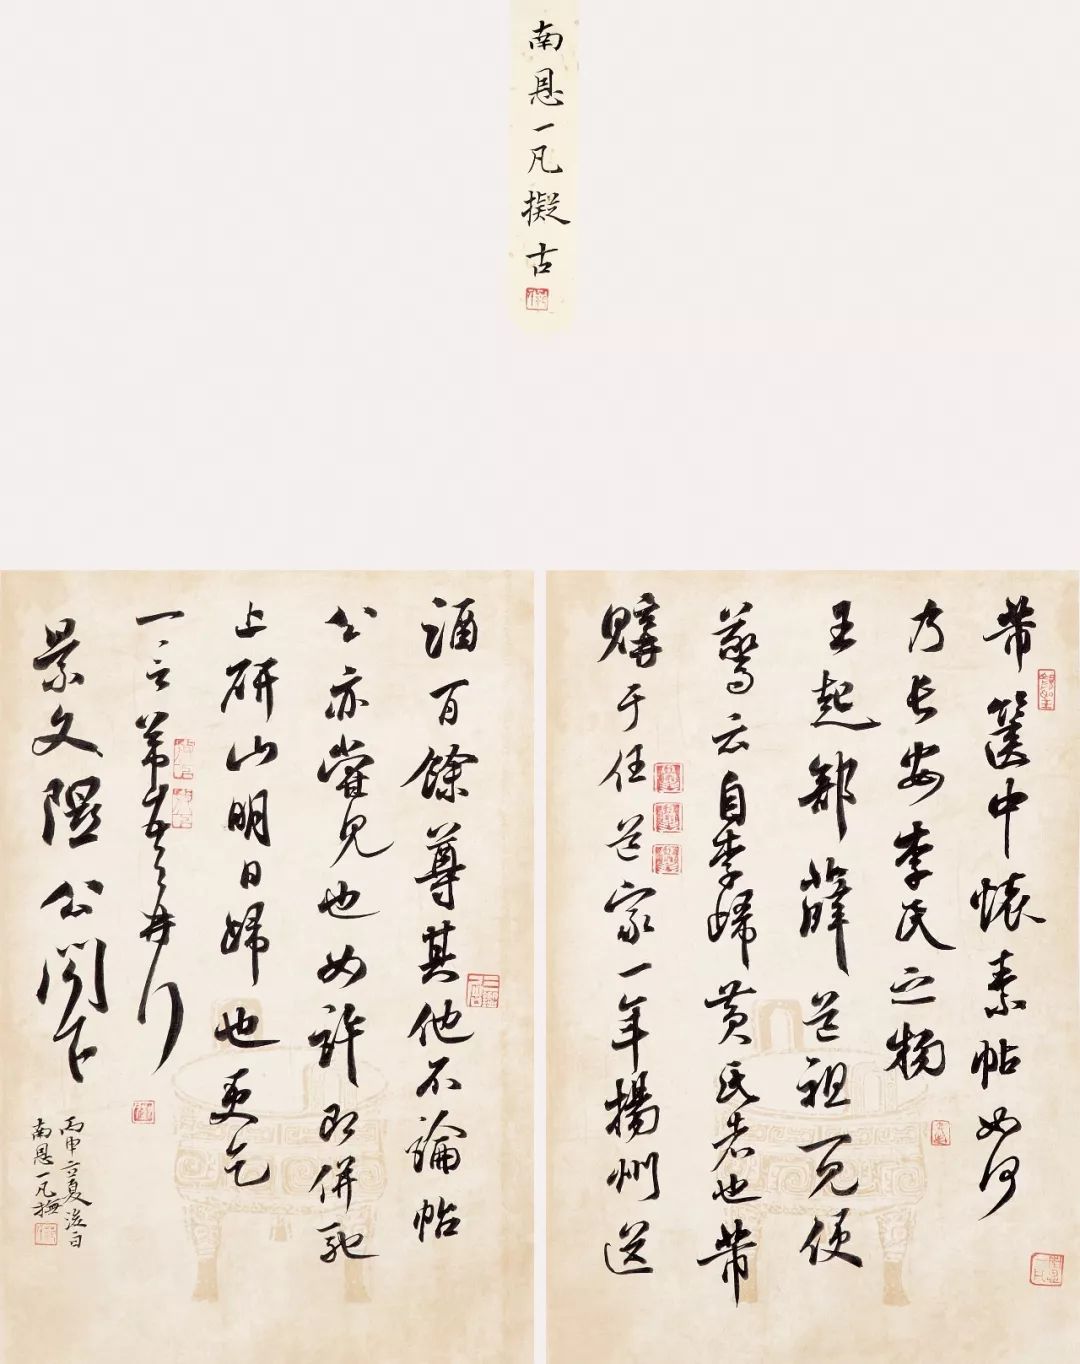 南恩一凡擬古
芾篋中懷素帖如何
乃長安李氏之物
王起部薛道祖一見便
驚云自李歸黃氏者也芾
購于任道家一年揚州送
酒百餘尊其他不論帖
公亦嘗見也如許即併馳
上研山明日歸也更乞
一言芾頓首再拜
景文隰公閣下
丙申立夏
南恩一凡撫